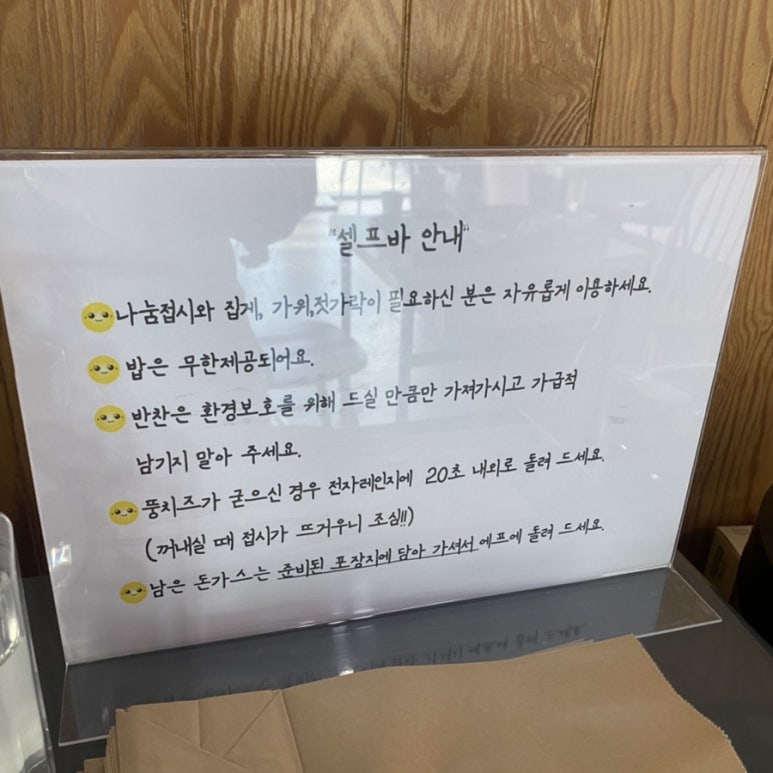 "셀프바 안내"
나눔접시와 집게, 가위,젓가락이 필요하신 분은 자유롭게 이용하세요.
밥은 무한제공되어요.
반찬은 환경보호를 위해 드실 만큼만 가져가시고 가급적
남기지 말아 주세요.
뚱치즈가 굳으신 경우 전자레인지에 20초 내외로 돌려 드세요.
(꺼내실 때 접시가 뜨거우니 조심!!)
남은 돈가스는 준비된 포장지에 담아 가셔서 에프에 돌려 드세요.